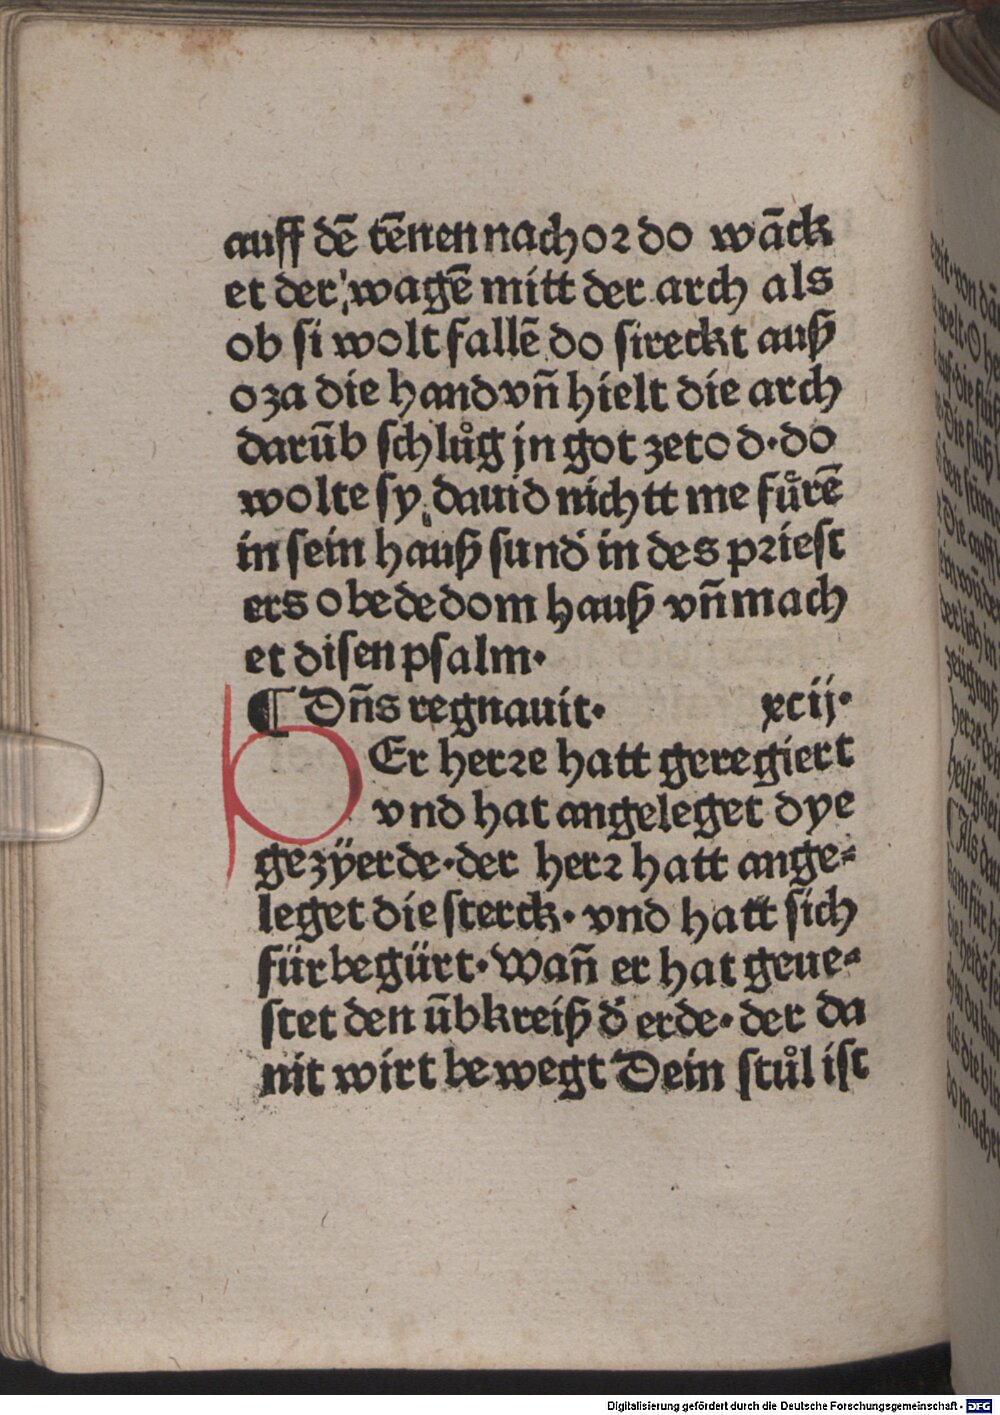 auff dē tēnen nachor do wāck
et der, wagē mitt der arch als
ob si wolt fallē do streckt auß
oza die hand vñ hielt die arch
darūb schlůg jn got zetod·do
wolte sy dauid nichtt me fůrē
in sein hauß sund̕ in des priest
ers obededom hauß vñ mach
et disen psalm·
¶ Dñs regnauit· xcij·
Er herre hatt geregiert
vnd hat angeleget dye
gezÿerde·der herr hatt ange⸗
leget die sterck· vnd hatt sich
fürbegürt·Wañ er hat geue⸗
stet den ūbkreiß d̕ erde·der da
nit wirt bewegt Dein stůl ist
Digitalisierung gefördert durch die Deutsche Forschungsgemeinschaft - DFG